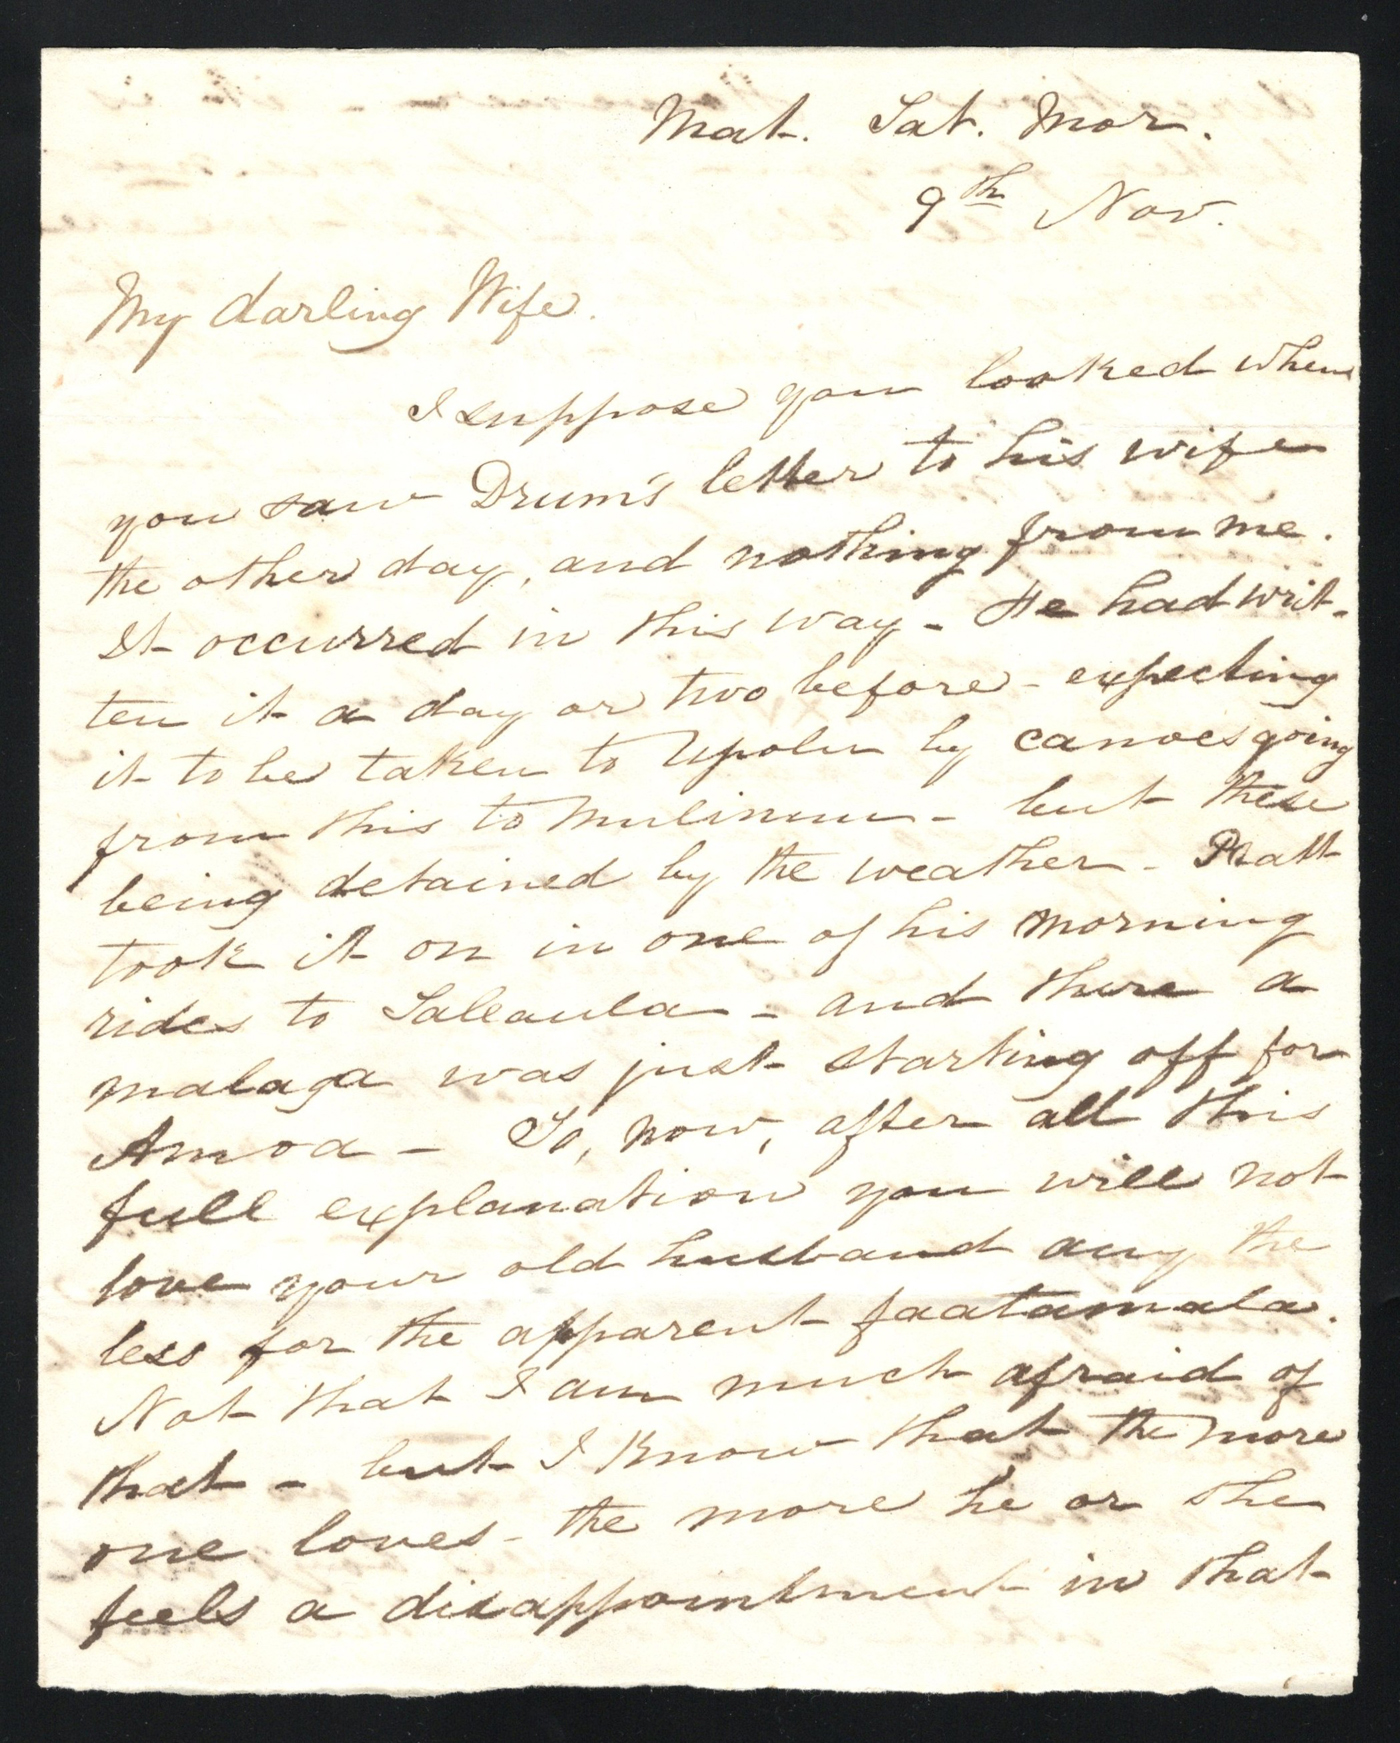 Mat. Sat. Mor.
9th Nov.
My darling Wife.
I suppose you looked when
you saw Drum's letter to his wife
the other day, and nothing from me.
It occurred in this way - He had writ-
ten it a day or two before - expecting
it to be taken to Upolu by canoes going
from this to Mulinuu - but these
being detained by the weather - Pratt
took it on in one of his morning
rides to Saleaula - and there a
malaga was just starting off for
Amoa - So, now, after all this
full explanation you will not
love your old husband any the
less for the apparent faatamala.
Not that I am much afraid of
that - but I know that the more
one loves - the more he or she
feels a disappointment in that